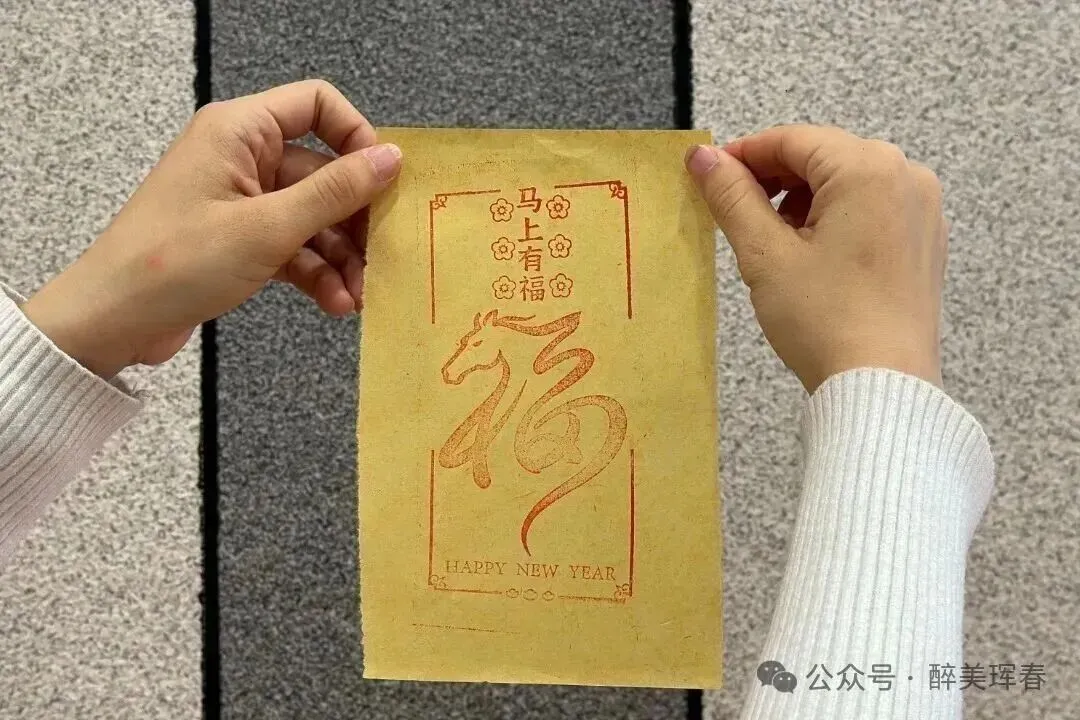 马上有福
福
HAPPY NEW YEAR
公众号·醉美珲春